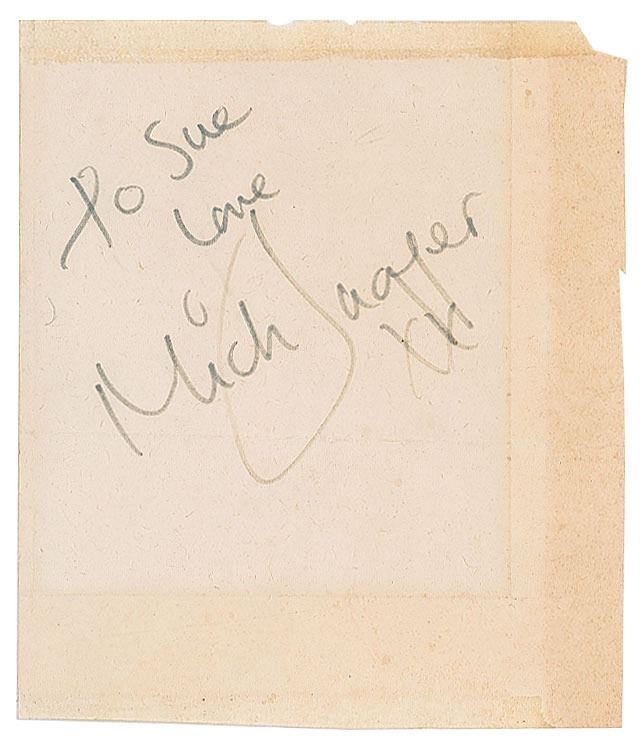 To Sue
Love
Mick Jagger
xx